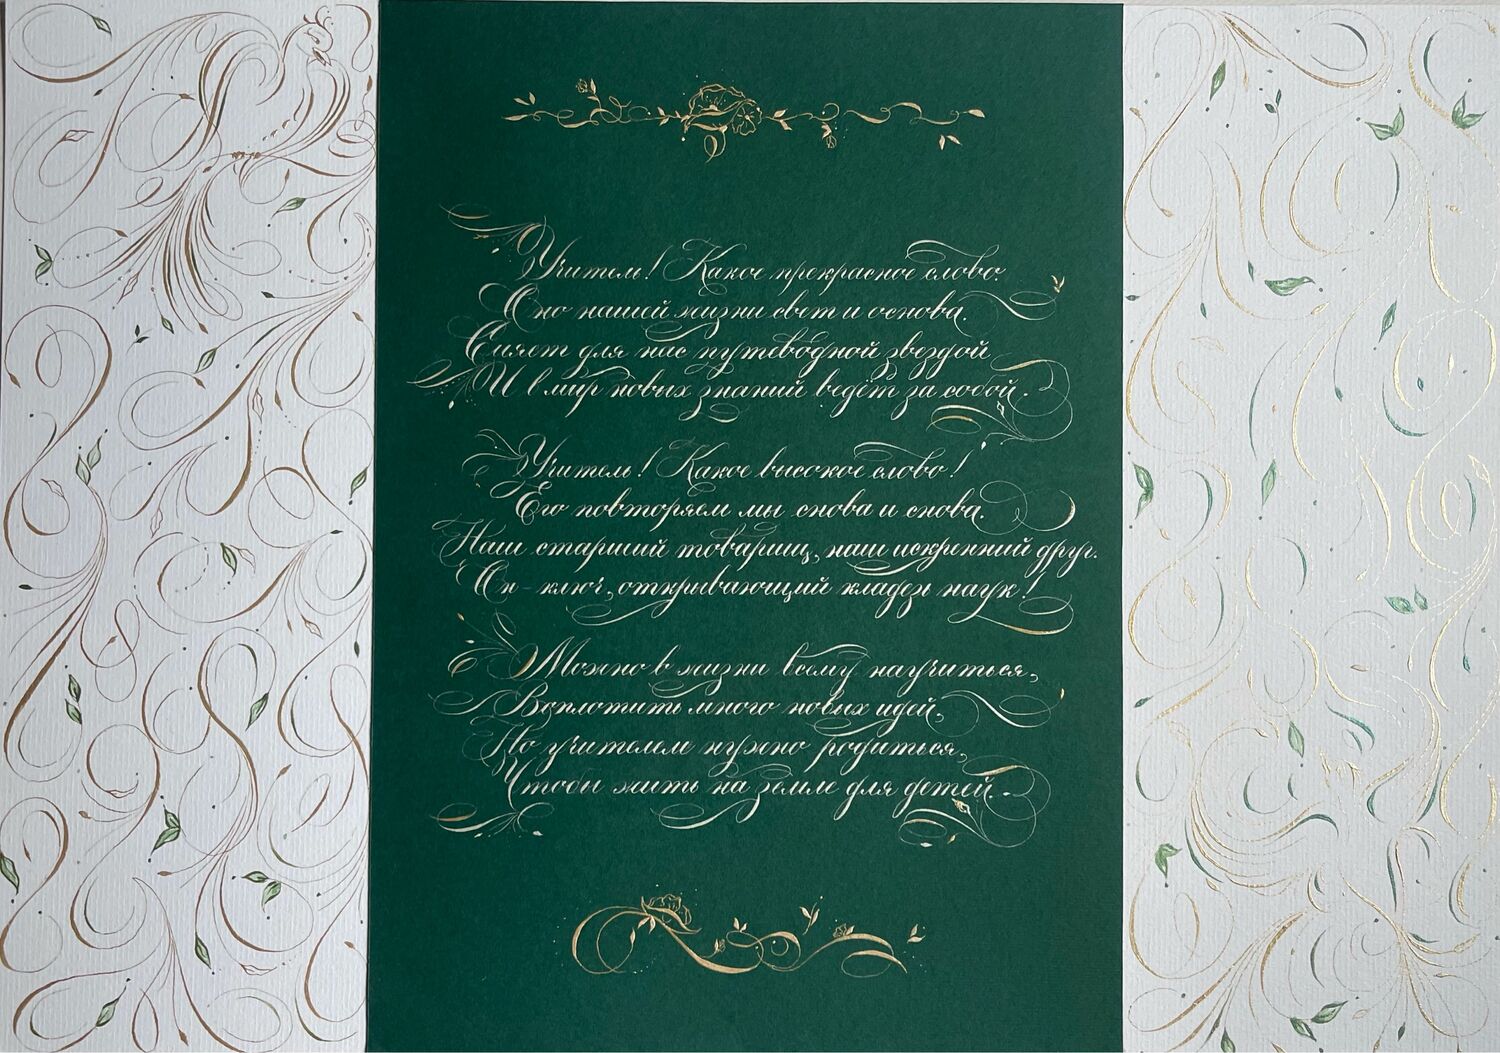 Учитель! Какое прекрасное слово.
Оно нашей жизни свет и основа.
Сияет для нас путеводной звездой
И в мир новых знаний ведёт за собой.
Учитель! Какое высокое слово!
Его повторяем мы снова и снова.
Наш старший товарищ, наш искренний друг.
Он - ключ, открывающий кладезь наук!
Можно в жизни всему научиться,
Воплотить много новых идей,
Но учителем нужно родиться,
Чтобы жить на земле для детей.